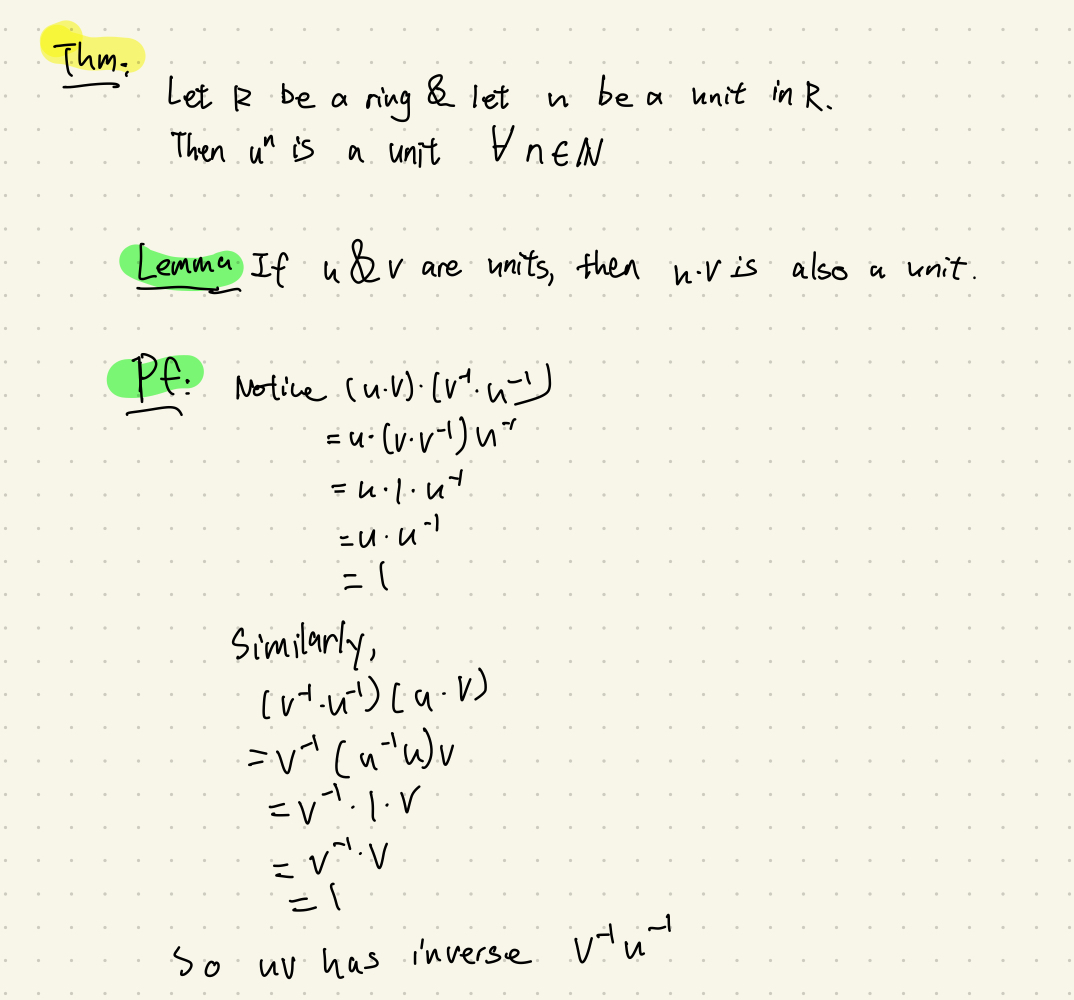 Thm:
Let R be a ring & let u be a unit in R.
Then uⁿ is a unit ∀ n ∈ ℕ
Lemma If u & v are units, then u·v is also a unit.
Pf: Notice (u·v)·(v⁻¹·u⁻¹)
= u·(v·v⁻¹)u⁻¹
= u·1·u⁻¹
= u·u⁻¹
= 1
Similarly,
(v⁻¹·u⁻¹)(u·v)
= v⁻¹(u⁻¹u)v
= v⁻¹·1·v
= v⁻¹·v
= 1
So uv has inverse v⁻¹u⁻¹